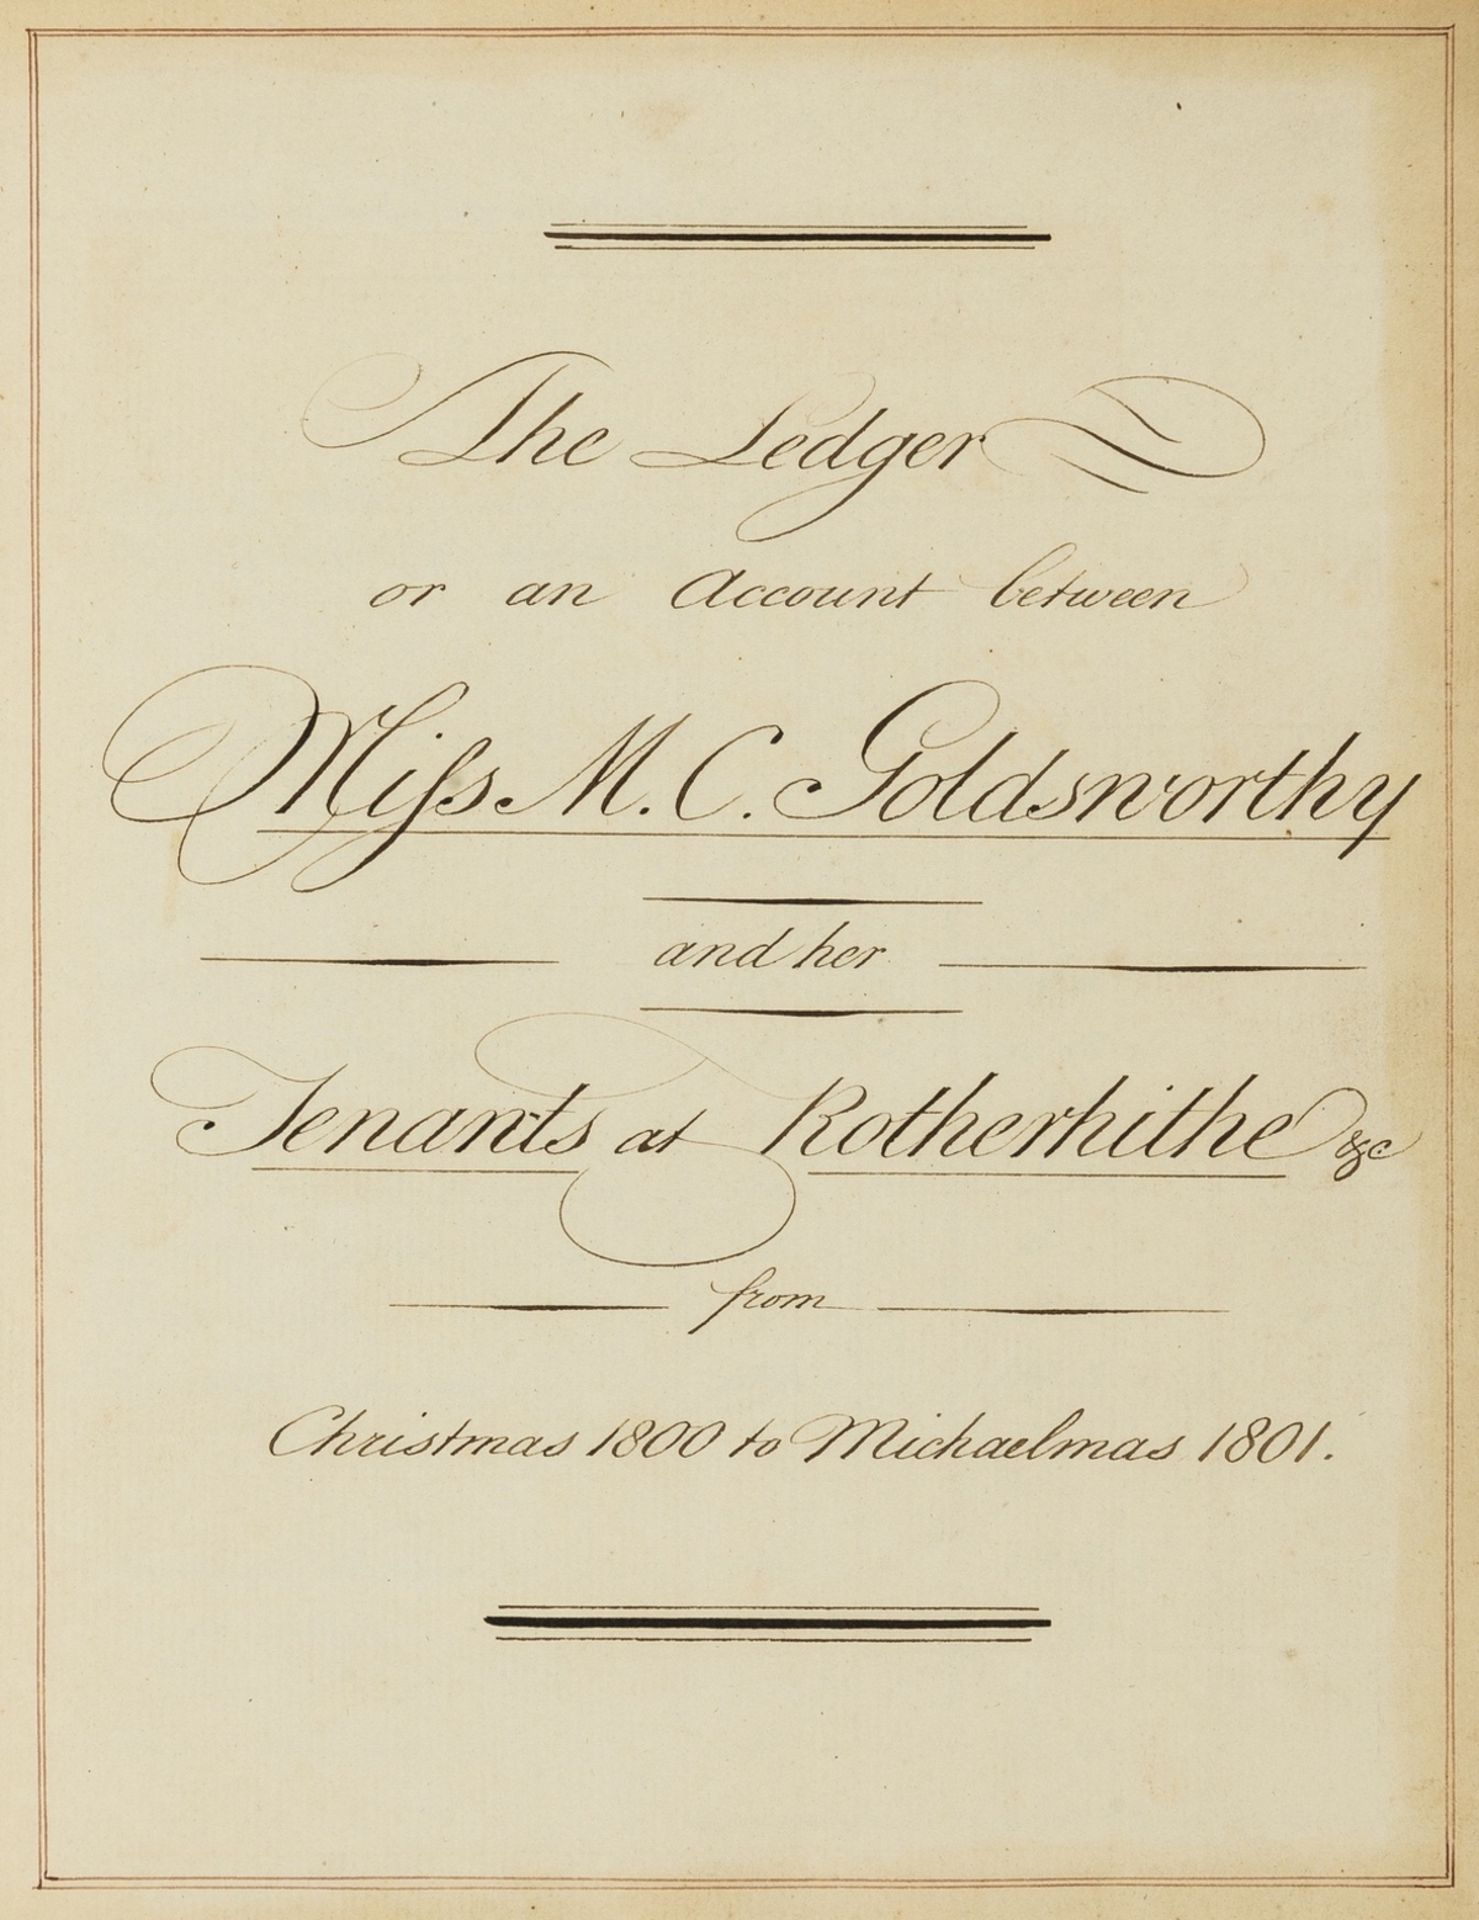 The Ledger
or an Account between
Miſs M. C. Goldsworthy
and her
Tenants at Rotherhithe &c
from
Christmas 1800 to Michaelmas 1801.